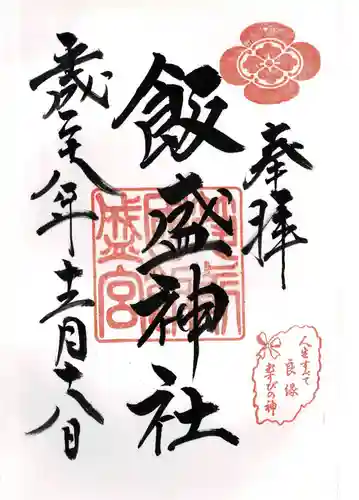 奉拝
人生すべて
良縁
むすびの神
飯盛神社
平成二十八年十二月十八日